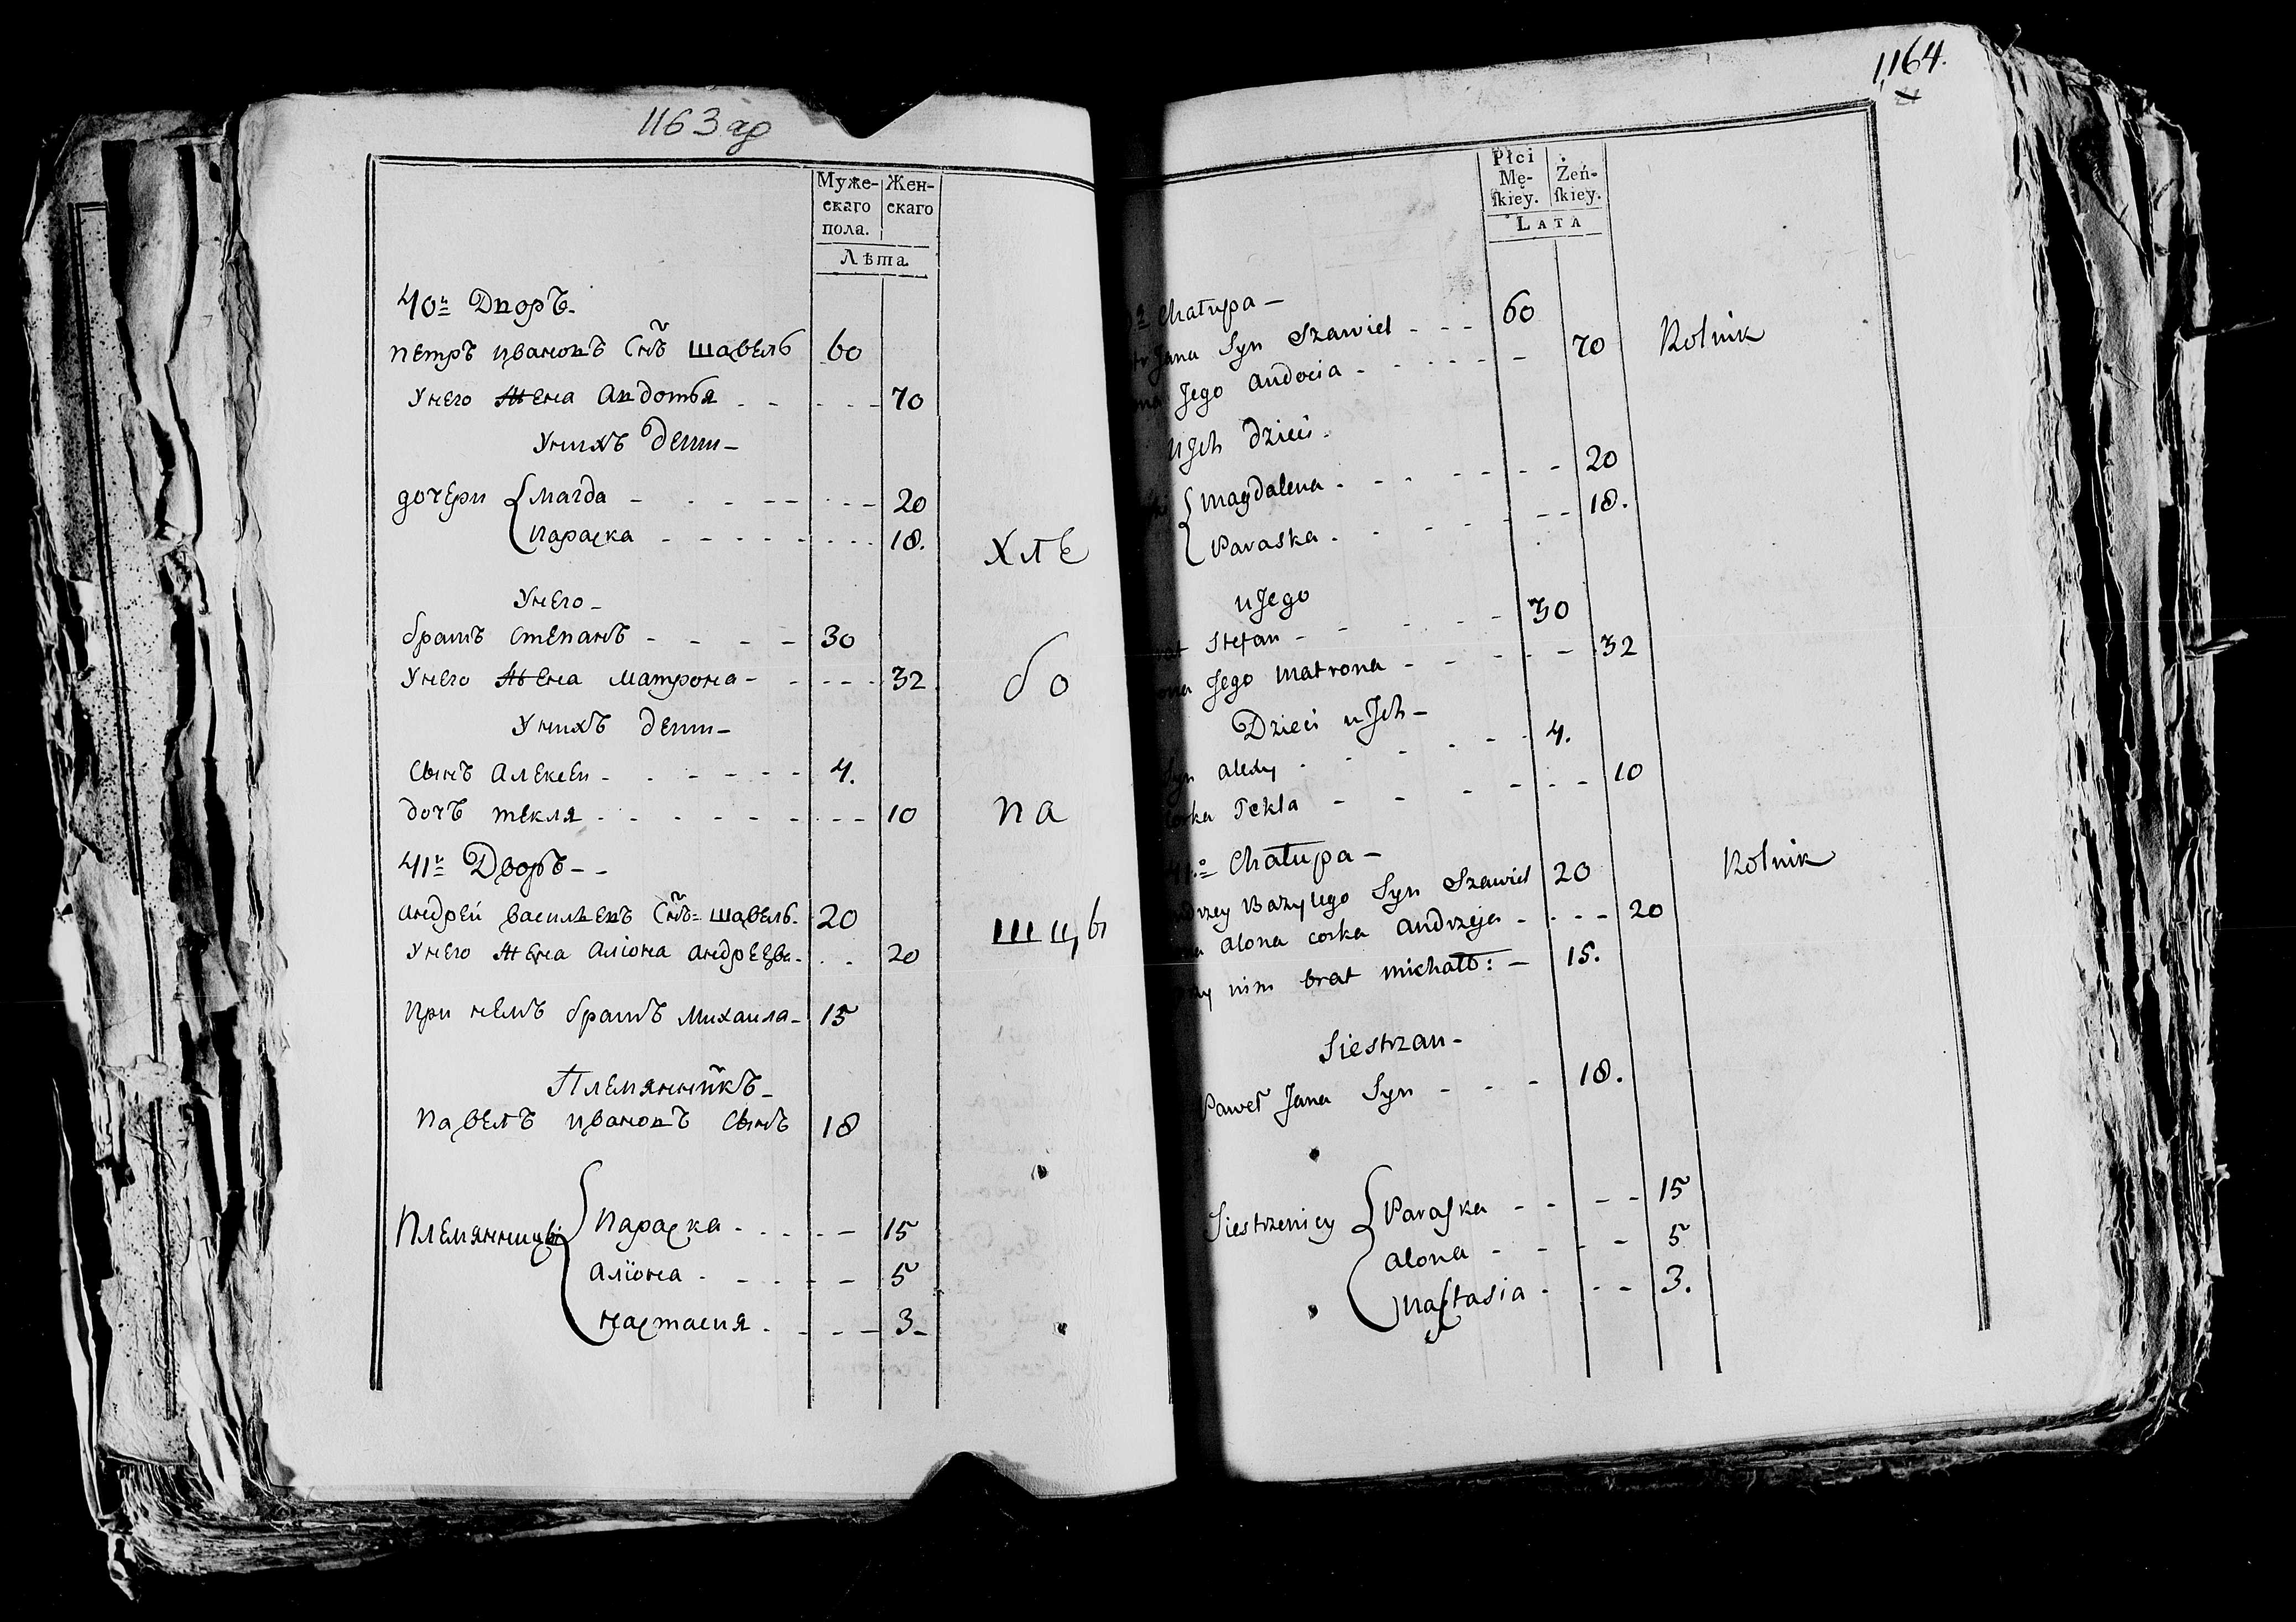 1163 аդ
Муже- Жен-
скаго скаго
пола.
Лѣта
40й Дворъ.
Петръ Ивановъ Снъ Шавель 60
У него Жена Авдотья - - - - - 70
У нихъ дети -
дочери { Магда - - - - - - - - 20
Параска - - - - - - - - 18.
Хле
У него -
братъ Степанъ - - - - 30
У него Жена Матрона - - - - - 32
бо
У нихъ дети -
Сынъ Алексеи - - - - - - 4.
дочъ текля - - - - - - - - - 10
па
41й Дворъ - -
Андрей Васильевъ Снъ = Шавель. 20
У него Жена Алiона Андреева - . . 20
шцы
При немъ братъ Михаила - 15
Племянникъ -
Павелъ Ивановъ Сынъ 18
Племянницы { Параска - - - - - 15
Алiона - - - - - 5
Настасия - - - - - 3 -
1,164.
Płci Żeń-
Mę- ſkiey.
ſkiey.
LATA
Chałupa -
Jana Syn Szawiel - - - 60 Rolnik
Jego Andocia - - - - - - 70
u Jch Dzieci -
{ Magdalena - - - - - - - 20
Paraska - - - - - - - - 18.
u Jego
Stefan - - - - - - 30
Jego Matrona - - - - - - 32
Dzieci u Jch -
Syn - - - - - 4.
Corka Tekla - - - - - - - 10
41.o Chałupa - Rolnik
Andrzey Bazylego Syn Szawiel 20
Alona corka Andrzeja - - - - 20
nim brat Michałł: - 15.
Siestrzan -
Paweł Jana Syn - - - 18.
Siestrzenicy { Paraſka - - - - 15
Alona - - - - 5
Naſtasia - - - - 3.